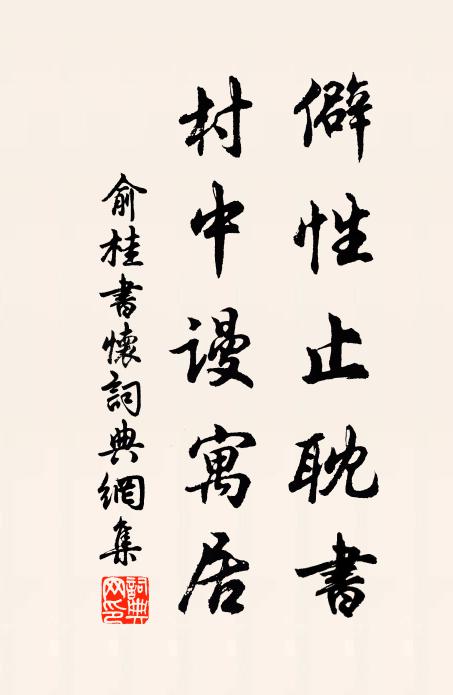 僻性止耽書
村中謾寓居
俞桂書懷詞典網集
詞典網印